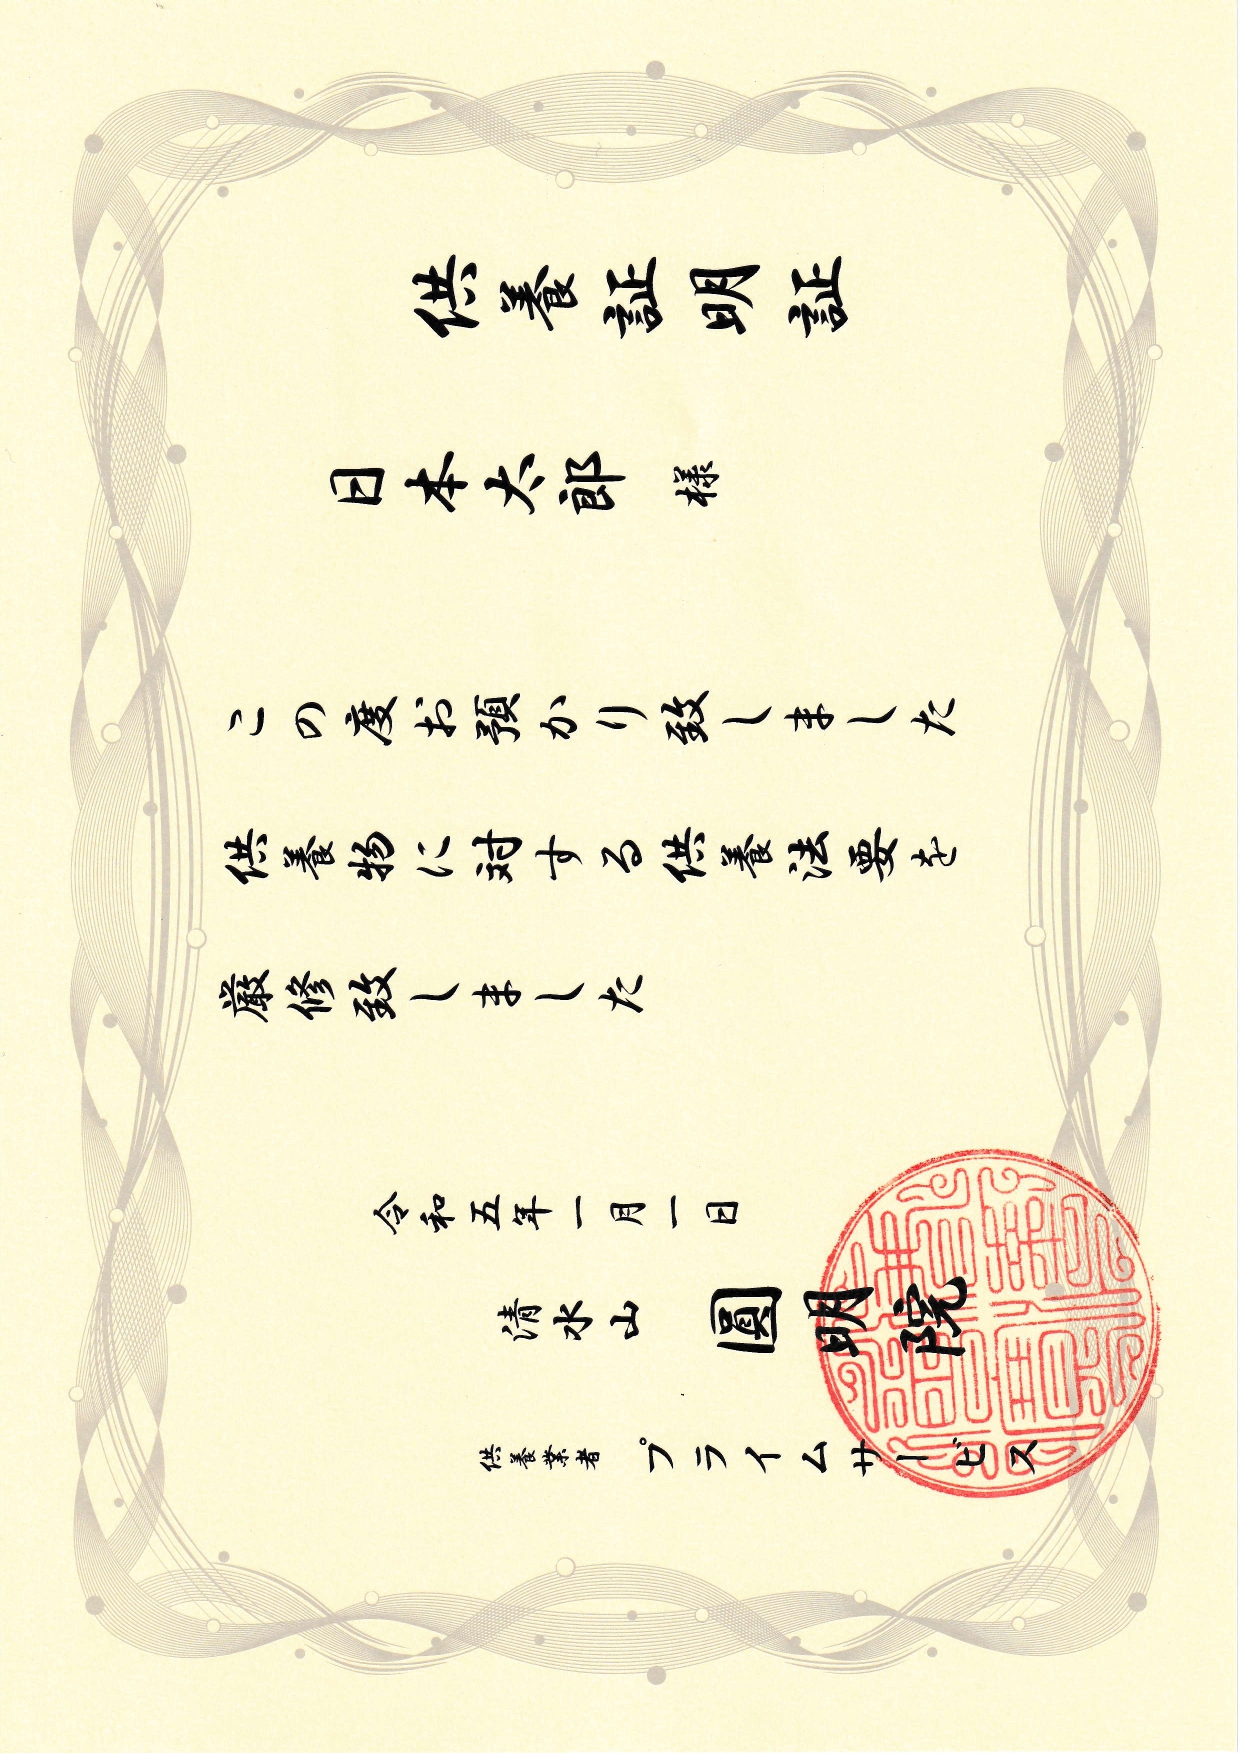 供養証明証
日本太郎 様
この度お預かり致しました
供養物に対する供養法要を
厳修致しました
令和五年一月一日
清水山 圓明院
供養業者 プライムサービス